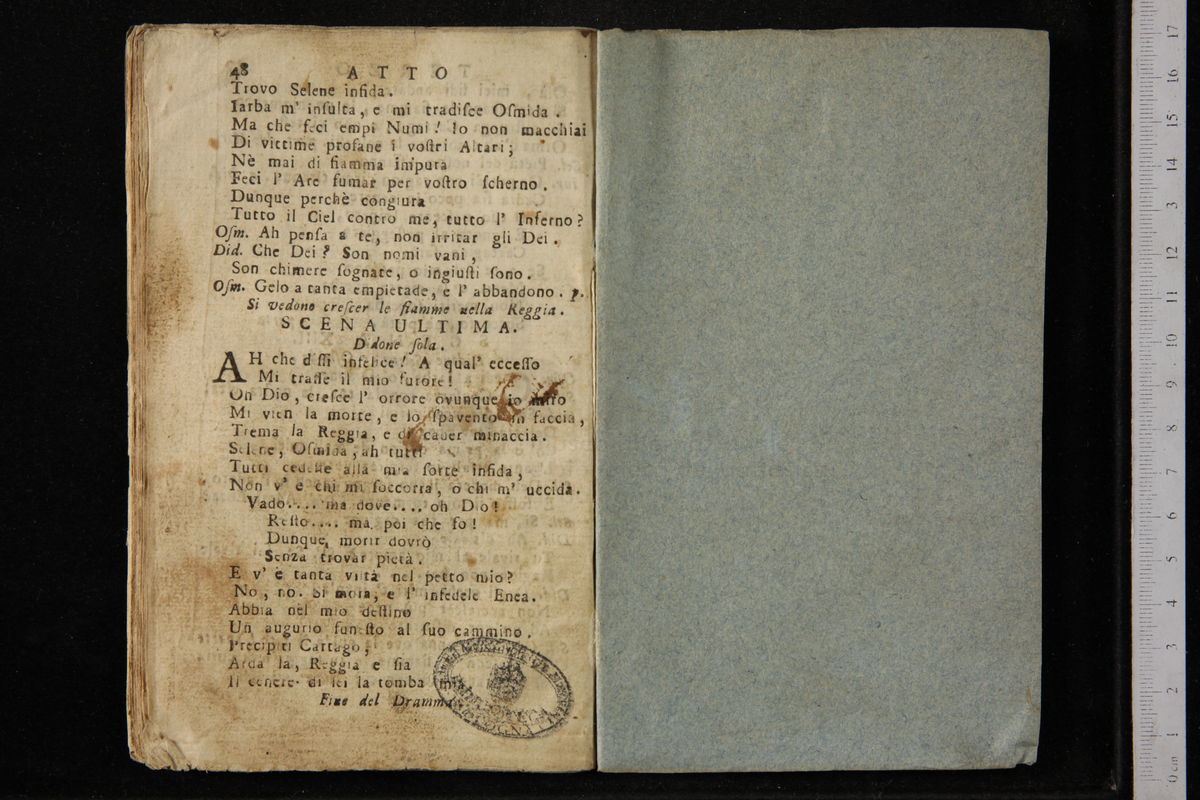 48 ATTO
Trovo Selene infida.
Iarba m' insulta, e mi tradisce Osmida.
Ma che feci empi Numi! Io non macchiai
Di vittime profane i vostri Altari;
Nè mai di fiamma impura
Feci l' Are fumar per vostro scherno.
Dunque perchè congiura
Tutto il Ciel contro me, tutto l' Inferno?
Osm. Ah pensa a te, non irritar gli Dei.
Did. Che Dei? Son nomi vani,
Son chimere sognate, o ingiusti sono.
Osm. Gelo a tanta empietade, e l' abbandono. p.
Si vedono crescer le fiamme nella Reggia.
SCENA ULTIMA.
Didone sola.
AH che dissi infelice! A qual' eccesso
Mi trasse il mio furore!
Oh Dio, cresce l' orrore ovunque io miro
Mi vien la morte, e lo spavento in faccia,
Trema la Reggia, e di cader minaccia.
Selene, Osmida, ah tutti
Tutti cedeste alla mia sorte infida,
Non v' è chi mi soccorra, o chi m' uccida.
Vado.... ma dove.... oh Dio!
Resto.... ma, poi che fo!
Dunque, morir dovrò
Senza trovar pietà.
E v' è tanta viltà nel petto mio?
No, no. Si mora, e l' infedele Enea.
Abbia nel mio destino
Un augurio funesto al suo cammino.
Precipiti Cartago,
Arda la, Reggia e sia
Il cenere di lei la tomba mia
Fine del Dramma
17
16
15
14
13
12
11
10
9
8
7
6
5
4
3
2
1
0 cm